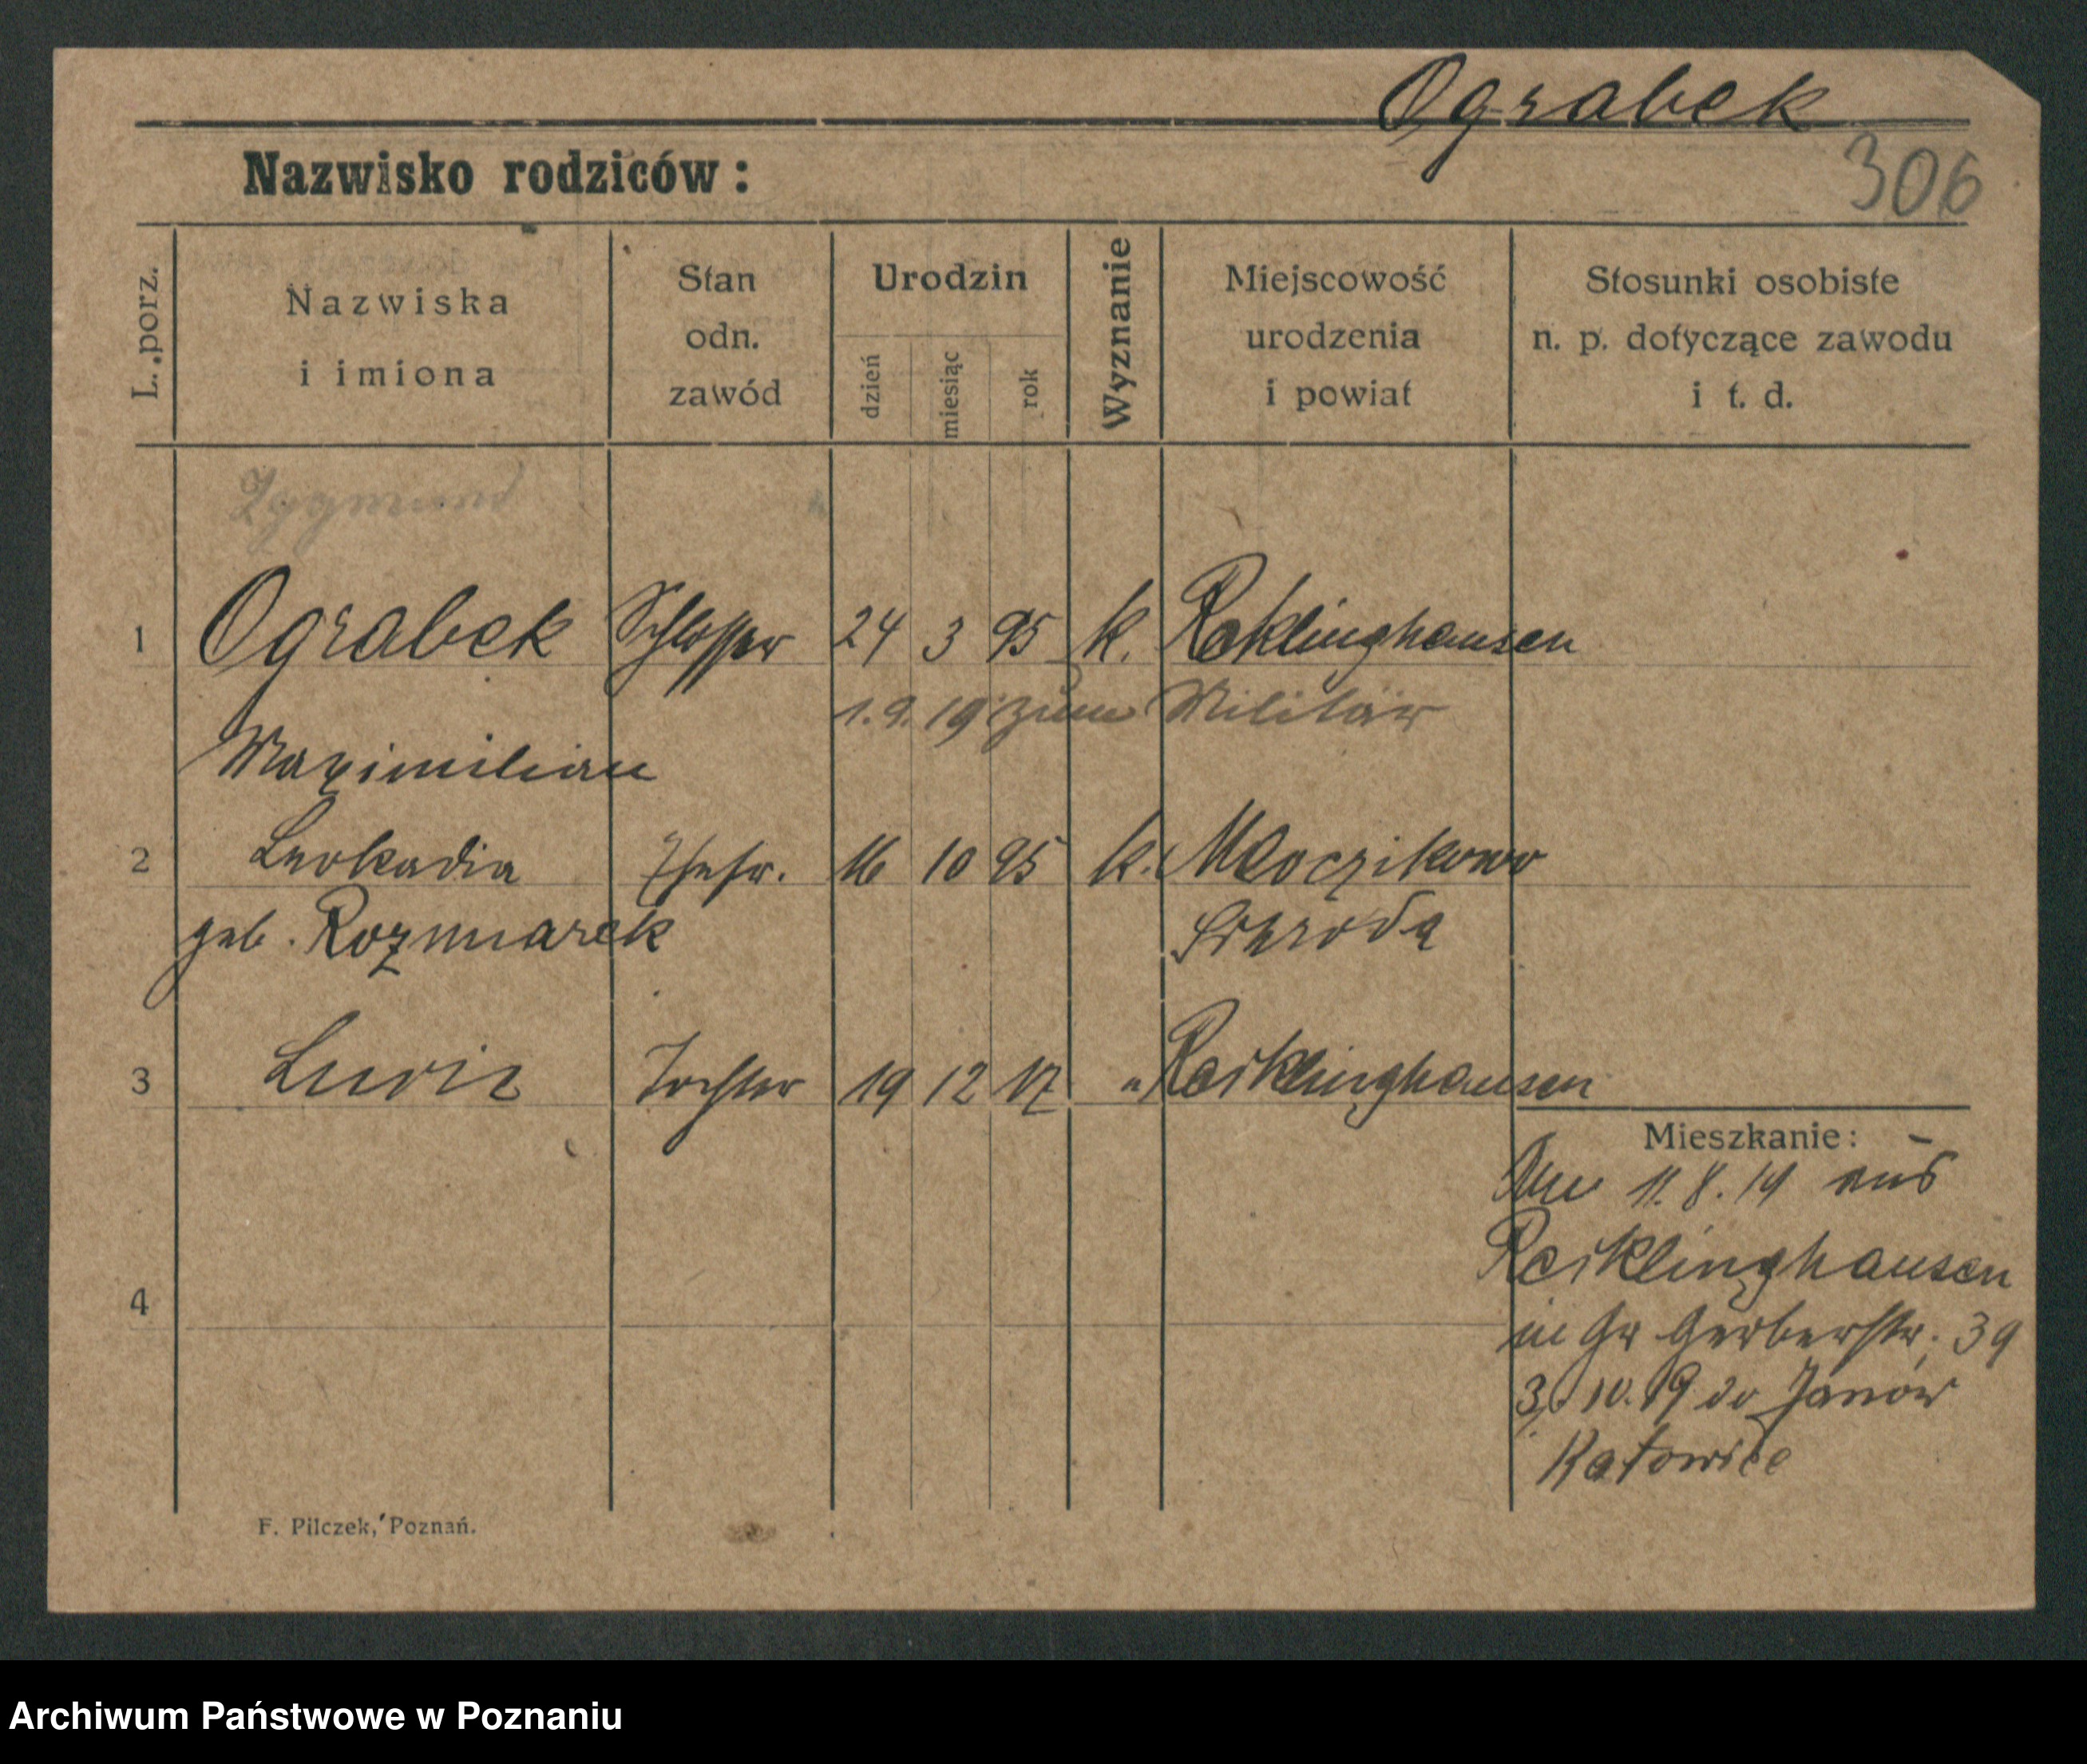 Ograbek
Nazwisko rodziców:
306
L. porz.
Nazwiska
i imiona
Stan
odn.
zawód
Urodzin
dzień
miesiąc
rok
Wyznanie
Miejscowość
urodzenia
i powiat
Stosunki osobiste
n. p. dotyczące zawodu
i t. d.
Zygmund
1 Ograbek Schlosser 24 3 95 k. Recklinghausen
1. 9. 19 zum Militär
Maximilian
2 Leokadia Ehefr. 16 10 95 k. Mloczikowo
geb. Rozmiarek Schroda
3 Tochter 19 12 17 " Recklinghausen
Mieszkanie:
11. 8. 19 aus
Recklinghausen
in Gr Gerberstr. 39
4
3. 10. 19 do Janów
Katowice
F. Pilczek, Poznań.
Archiwum Państwowe w Poznaniu